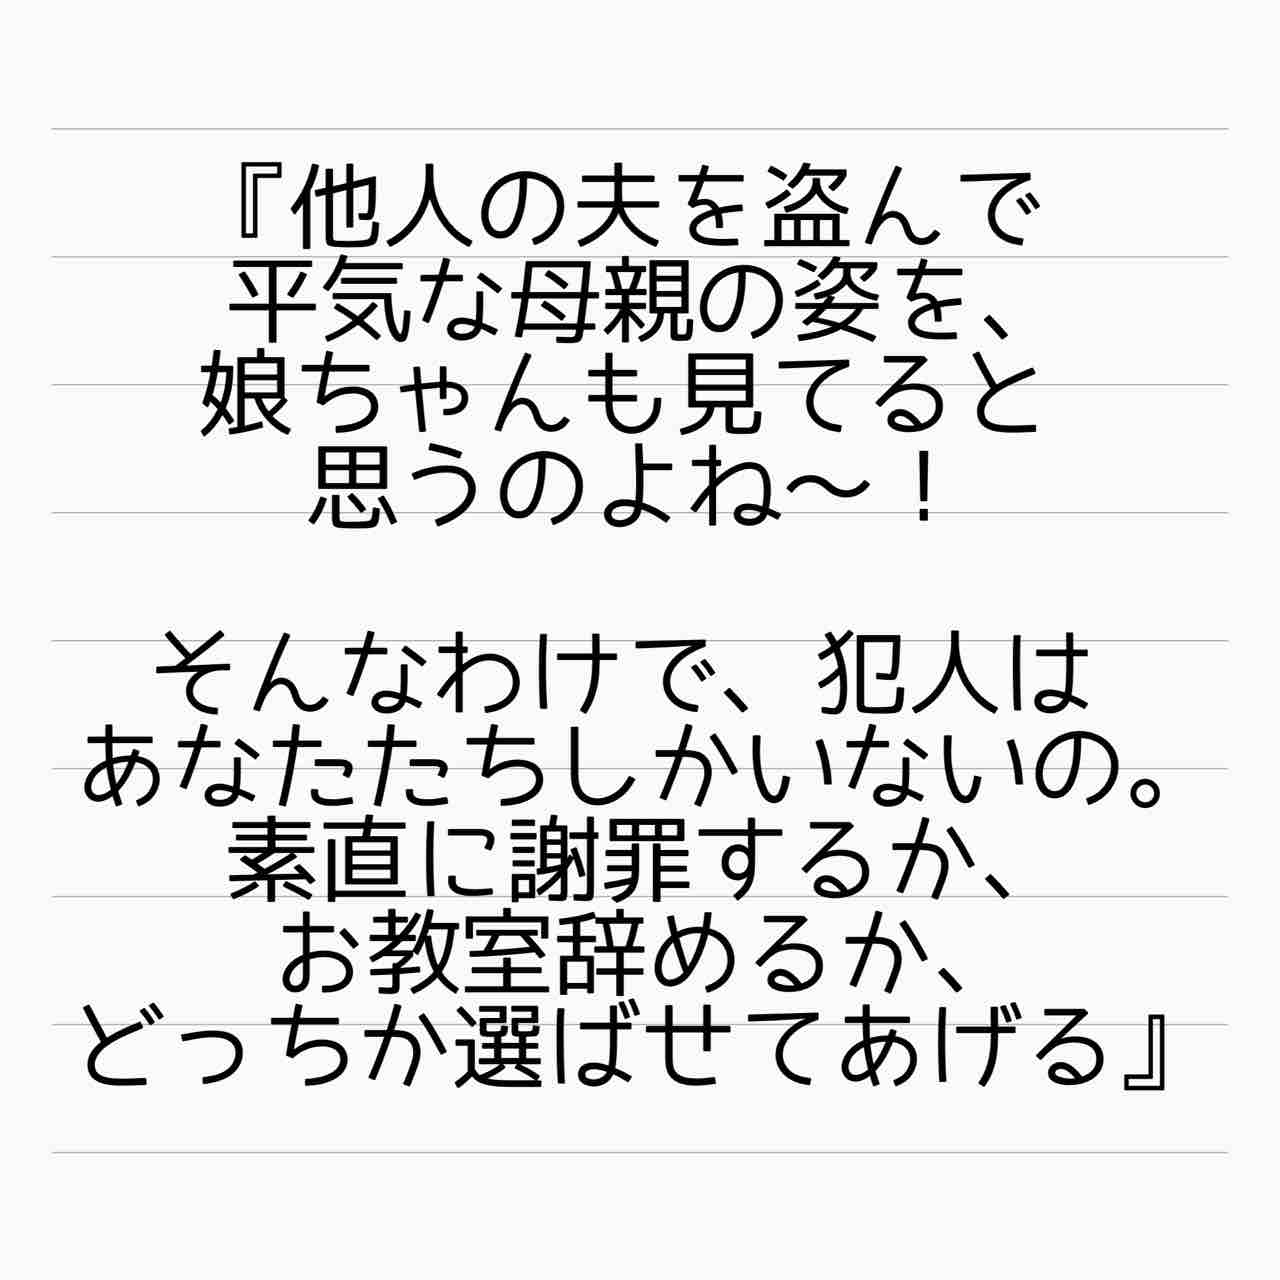 『他人の夫を盗んで
平気な母親の姿を、
娘ちゃんも見てると
思うのよね〜！
そんなわけで、犯人は
あなたたちしかいないの。
素直に謝罪するか、
お教室辞めるか、
どっちか選ばせてあげる』